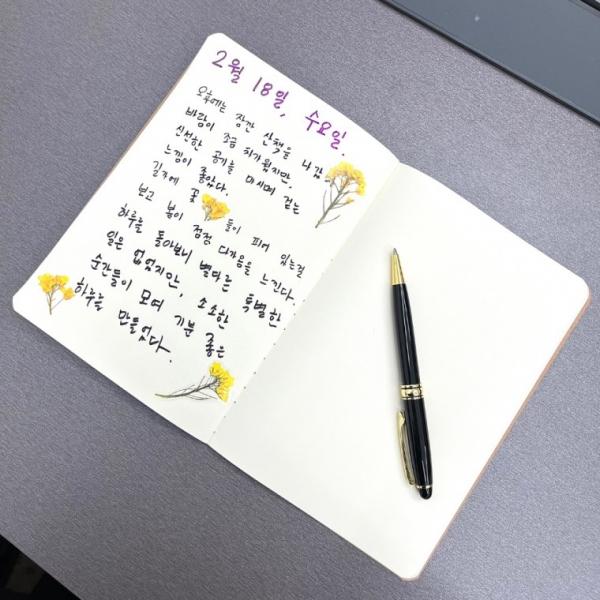 2월 18일, 수요일.
오후에는 잠깐 산책을 나감.
바람이 조금 차가웠지만,
신선한 공기를 마시며 걷는
느낌이 좋았다.
길가에 꽃들이 피어 있는걸
보고 봄이 점점 다가옴을 느낀다.
하루를 돌아보니 별다른 특별한
일은 없었지만, 소소한
순간들이 모여 기분 좋은
하루를 만들었다.